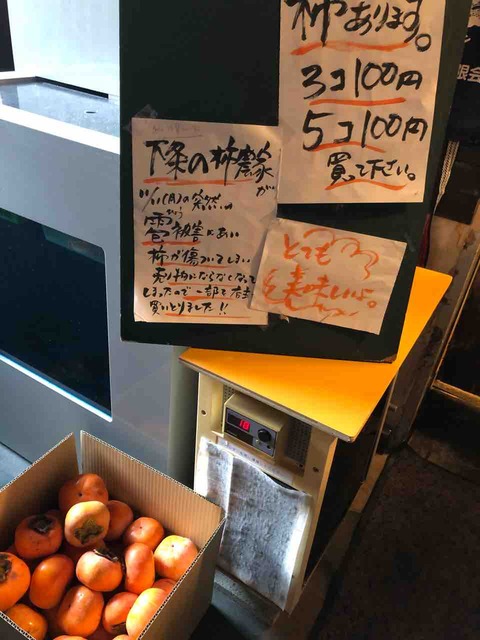 柿あります。
3コ100円
5コ100円
買って下さい。
下条の柿農家が
11/11(月)の突然の
雹 ひょう
被害にあい
柿が傷ついてしまい
売り物にならなくなって
しまったので一部を当店
買いとりました!!
とても
美味しいよ。
18
限会